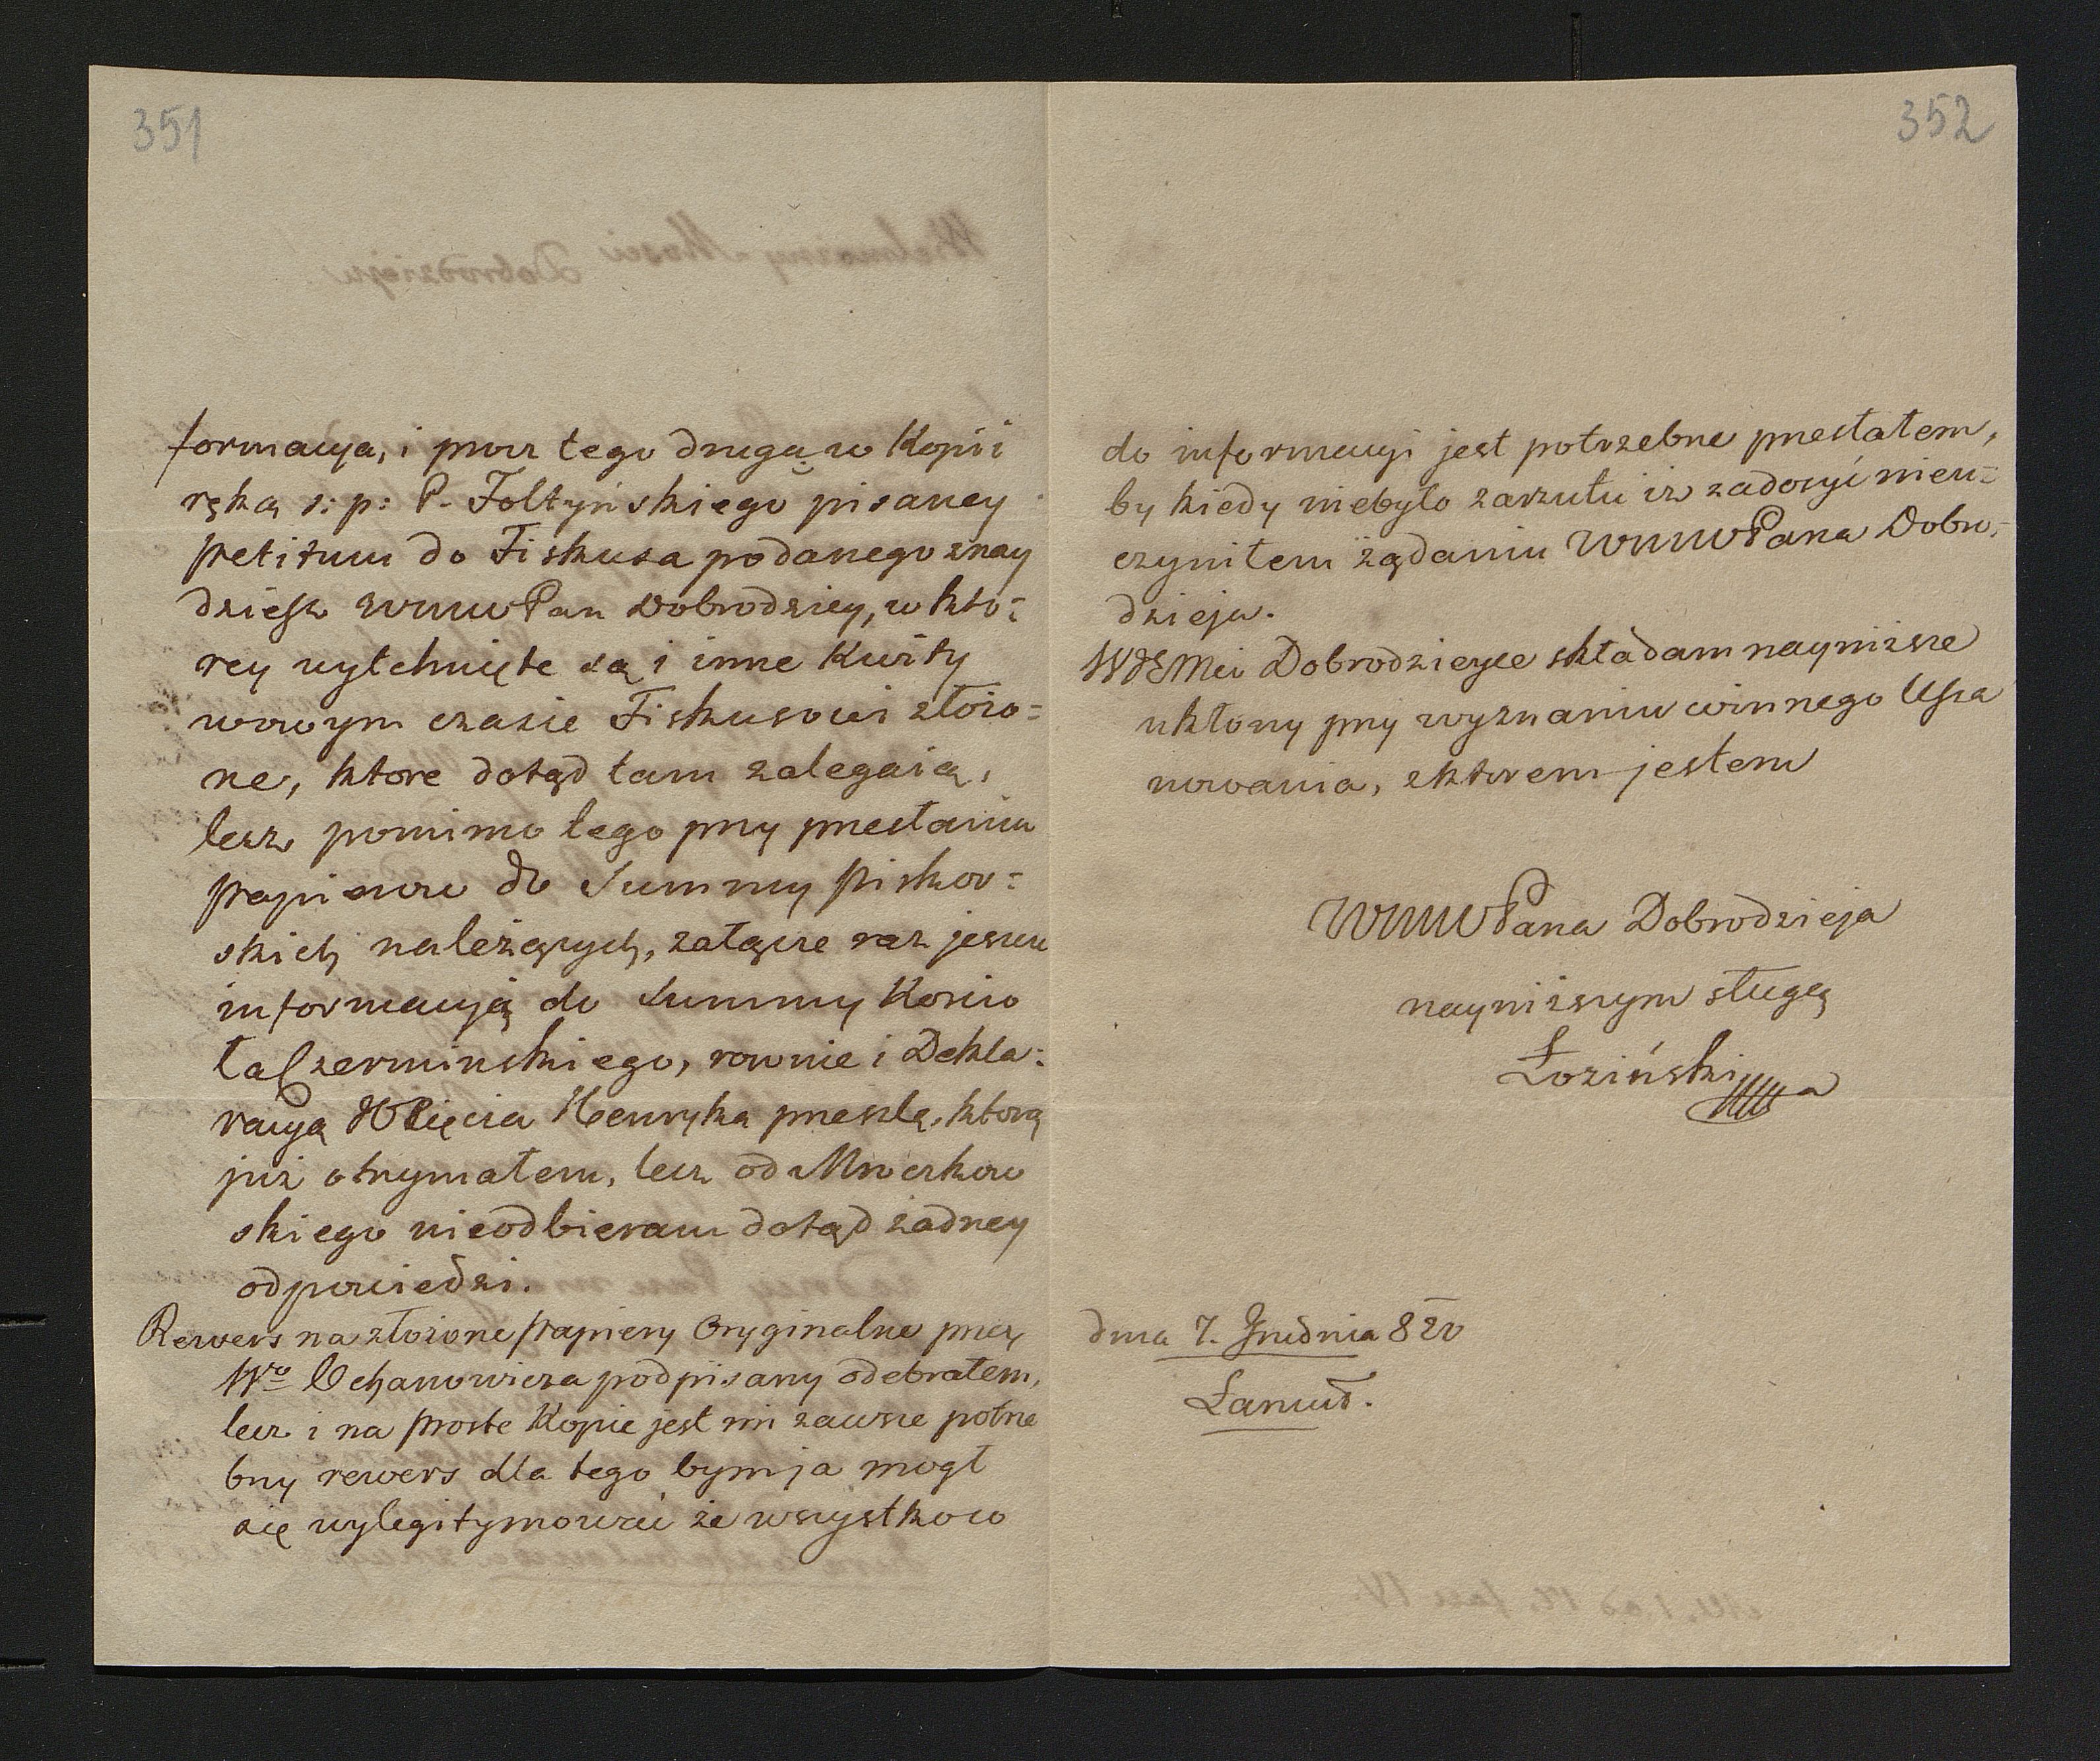 351
formacya, i procz tego drugą w Kopii
ręką s: p: P. Foltyńskiego pisaney
petitum do Fiskusa podanego znay
dziesz WMWPan Dobrodziey, w kto=
rey wytchnięte są i inne Kwity
wowym czasie Fiskusowi złożo=
ne, ktore dotąd tam zalegaią,
lecz pomimo tego przy przesłaniu
papierow do Summy Piskor=
skich należących, załącze raz jeszcze
informacyą do Summy
rownie i Dekla=
racyą Henryka przeszlę, ktorą
już otrzymałem, lecz od Mroczkow
skiego nieodbieram dotąd żadney
odpowiedzi.
Rewers na złożone papiery Oryginalne przez
Wo Ochanowicza podpisany odebrałem,
lecz i na proste Kopie jest mi zawsze potrze
bny rewers dla tego bym ja mogł
się wylegitymować że wszystko co
352
do informacyi jest potrzebne przesłałem,
by kiedy niebyło zarzutu iż zadosyć nieu=
czyniłem żądaniu WMWPana Dobro=
dzieja.
Dobrodzieyce składam nayniższe
ukłony przy wyznaniu winnego Usza
nowania, zktorem jestem
WMWPana Dobrodzieja
nayniższym sługą
Łoziński
dnia 7. Grudnia 820
Łancut.